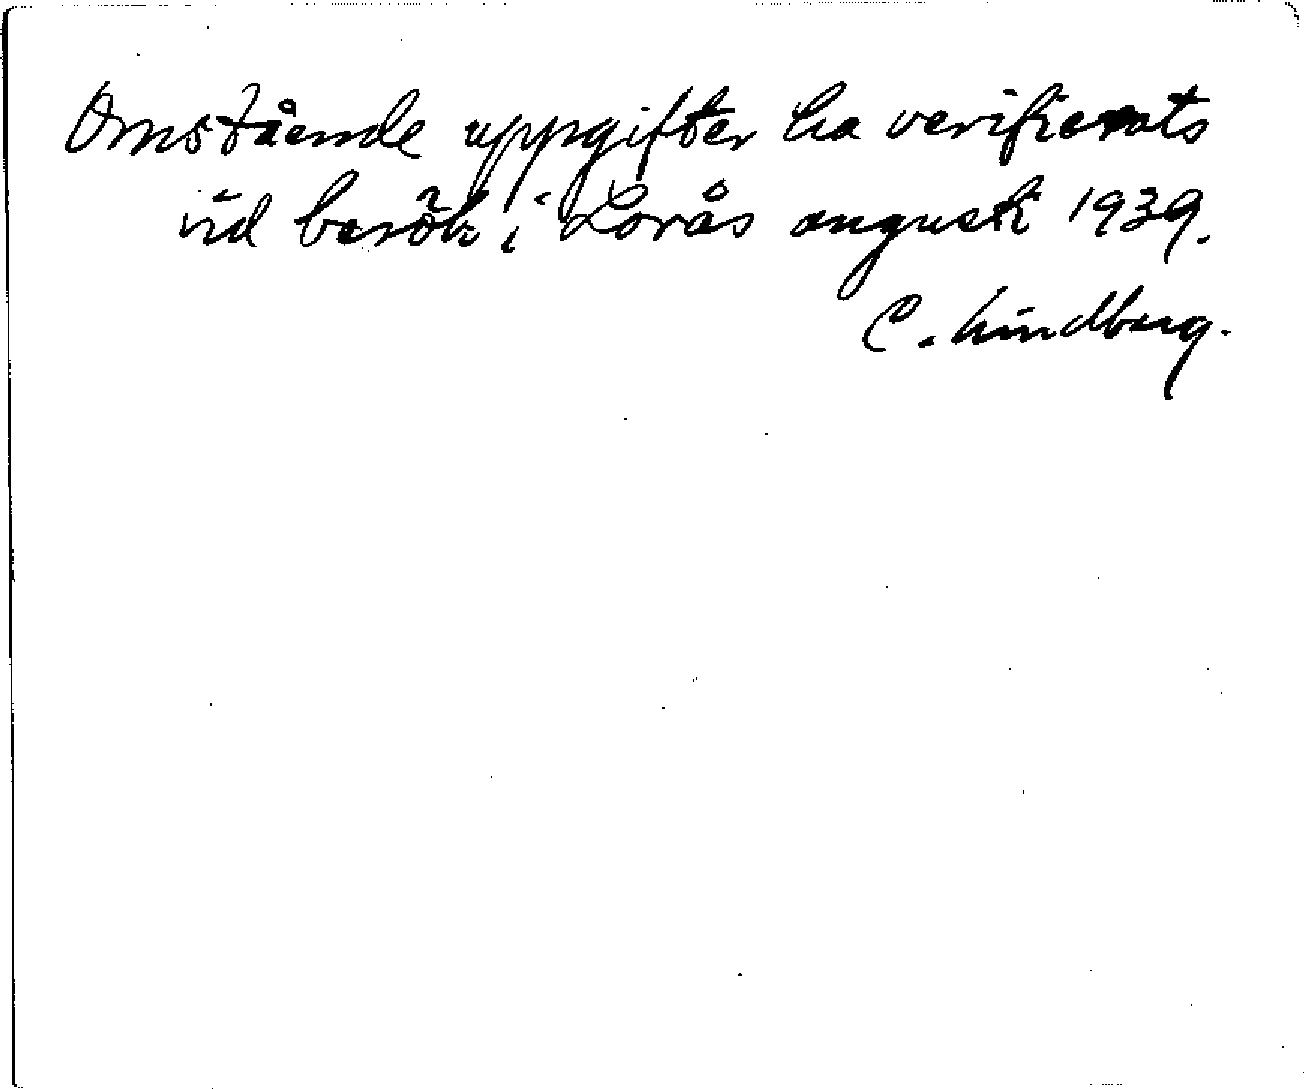 Omstående uppgifter ha verifierats
vid besök i Lorås augusti 1939.
C. Lindberg.